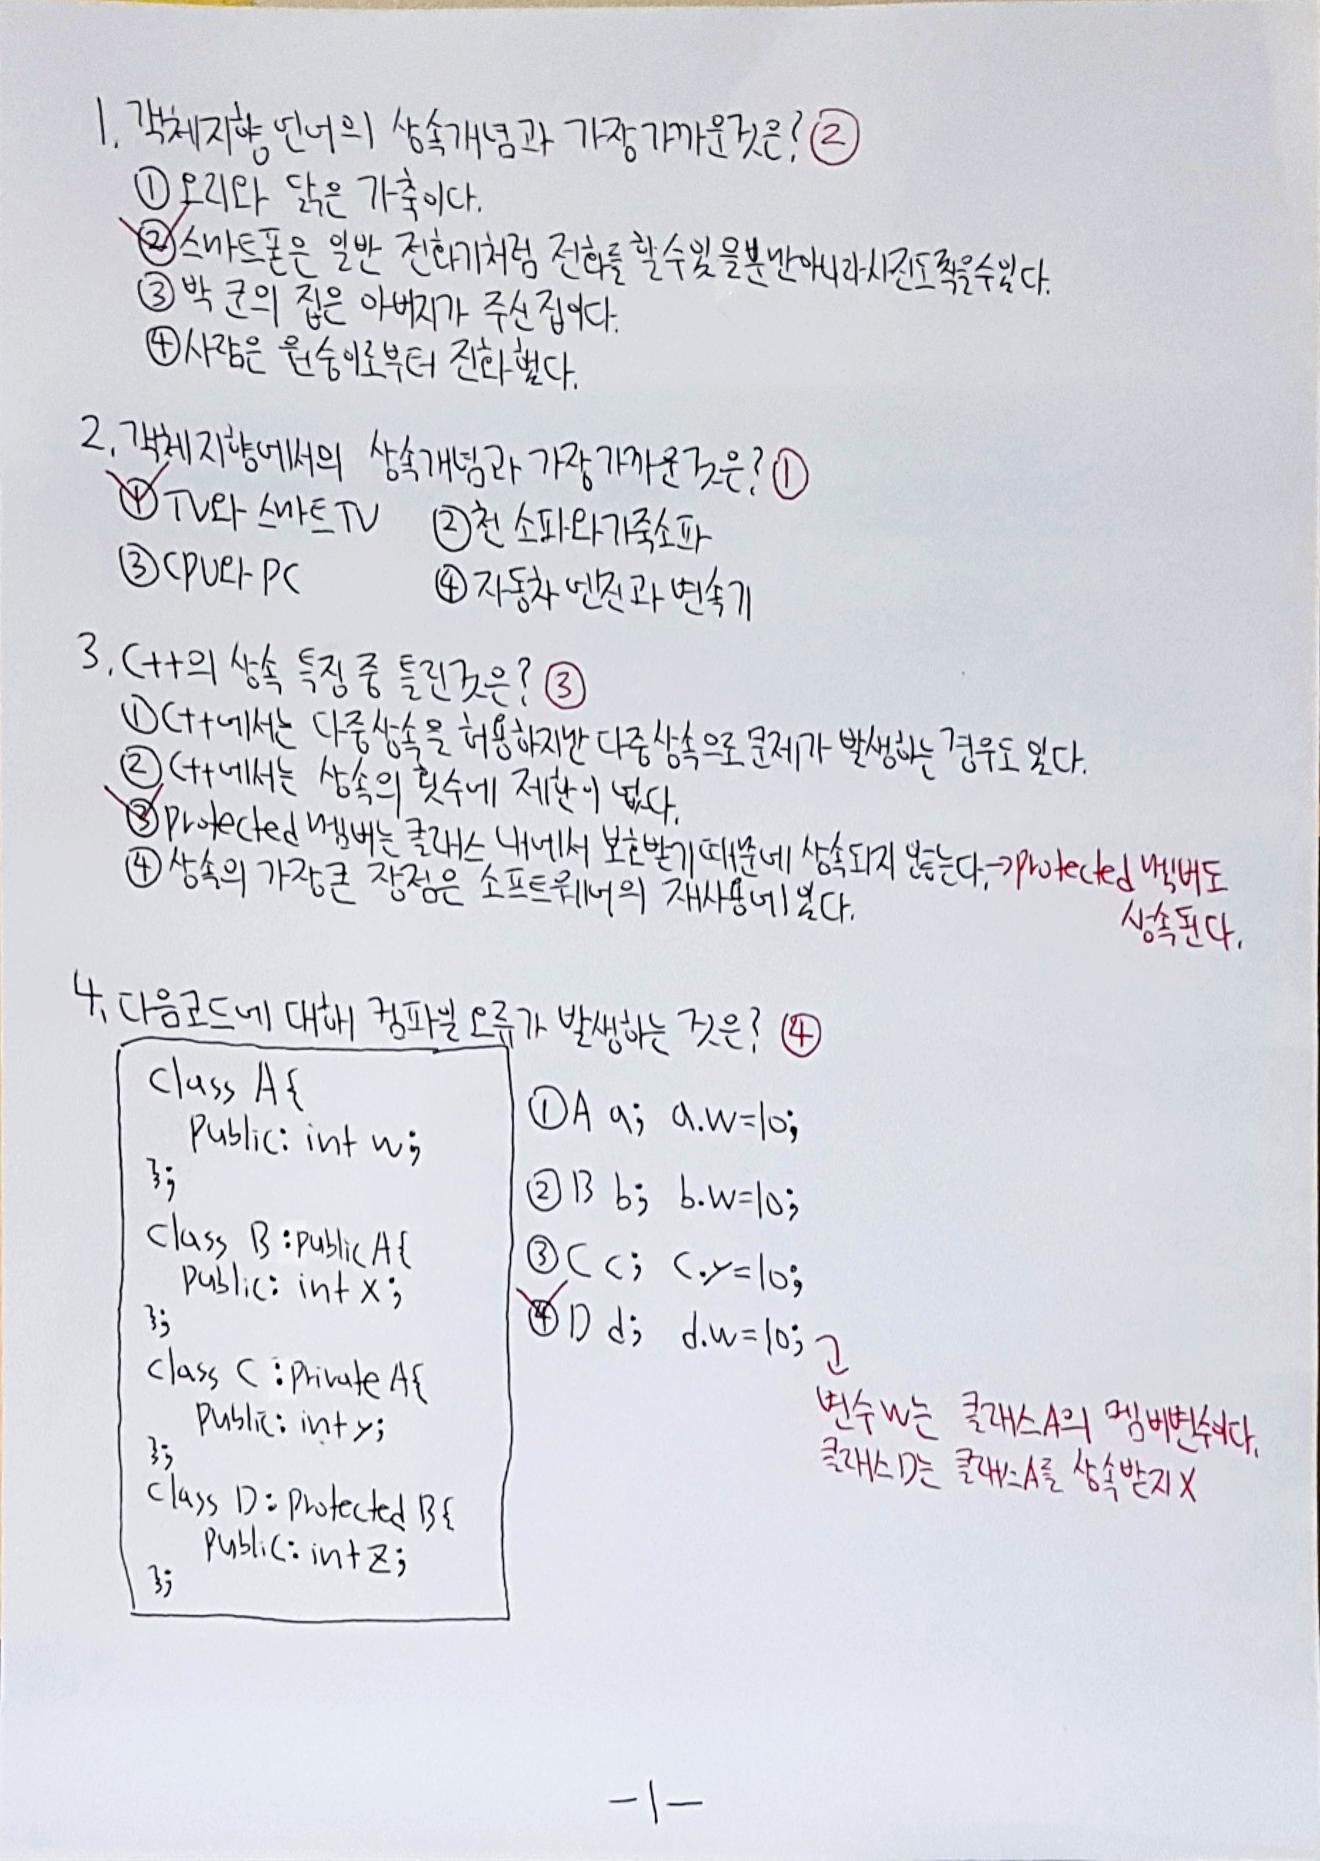 1. 객체지향 언어의 상속개념과 가장가까운것은? ②
① 오리와 닭은 가축이다.
② 스마트폰은 일반 전화기처럼 전화를 할수있을뿐만아니라 사진도찍을수있다.
③ 박 군의 집은 아버지가 주신집이다.
④ 사람은 원숭이로부터 진화했다.
2. 객체지향에서의 상속개념과 가장가까운것은? ①
① TV와 스마트TV ② 천 소파와가죽소파
③ CPU와 PC ④ 자동차 엔진과 변속기
3. C++의 상속 특징 중 틀린것은? ③
① C++에서는 다중상속을 허용하지만 다중상속으로 문제가 발생하는 경우도 있다.
② C++에서는 상속의 횟수에 제한이 없다.
③ Protected 멤버는 클래스 내에서 보호받기때문에 상속되지 않는다. → Protected 멤버도
상속된다.
④ 상속의 가장큰 장점은 소프트웨어의 재사용에 있다.
4. 다음코드에 대해 컴파일 오류가 발생하는 것은? ④
class A{
Public: int w;
};
class B : public A{
Public: int x;
};
class C : Private A{
Public: int y;
};
class D : Protected B{
Public: int z;
};
① A a; a.w=10;
② B b; b.w=10;
③ C c; c.y=10;
④ D d; d.w=10;
변수 w는 클래스A의 멤버변수이다.
클래스D는 클래스A를 상속받지 X
-1-